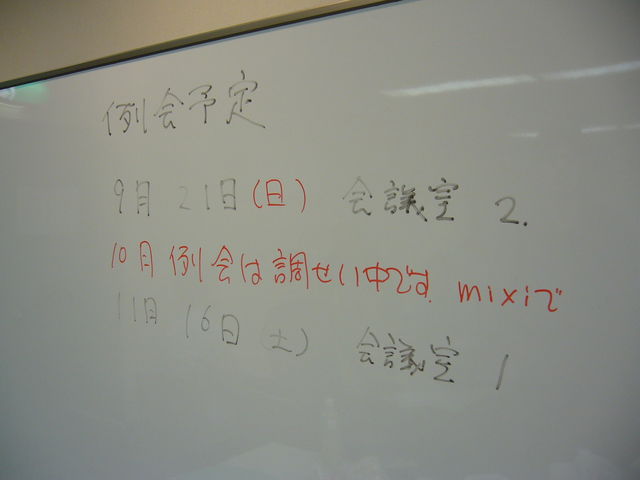 例会予定
9月 21日(日) 会議室 2.
10月 例会は調せい中です. mixiで
11月 16日(土) 会議室 1